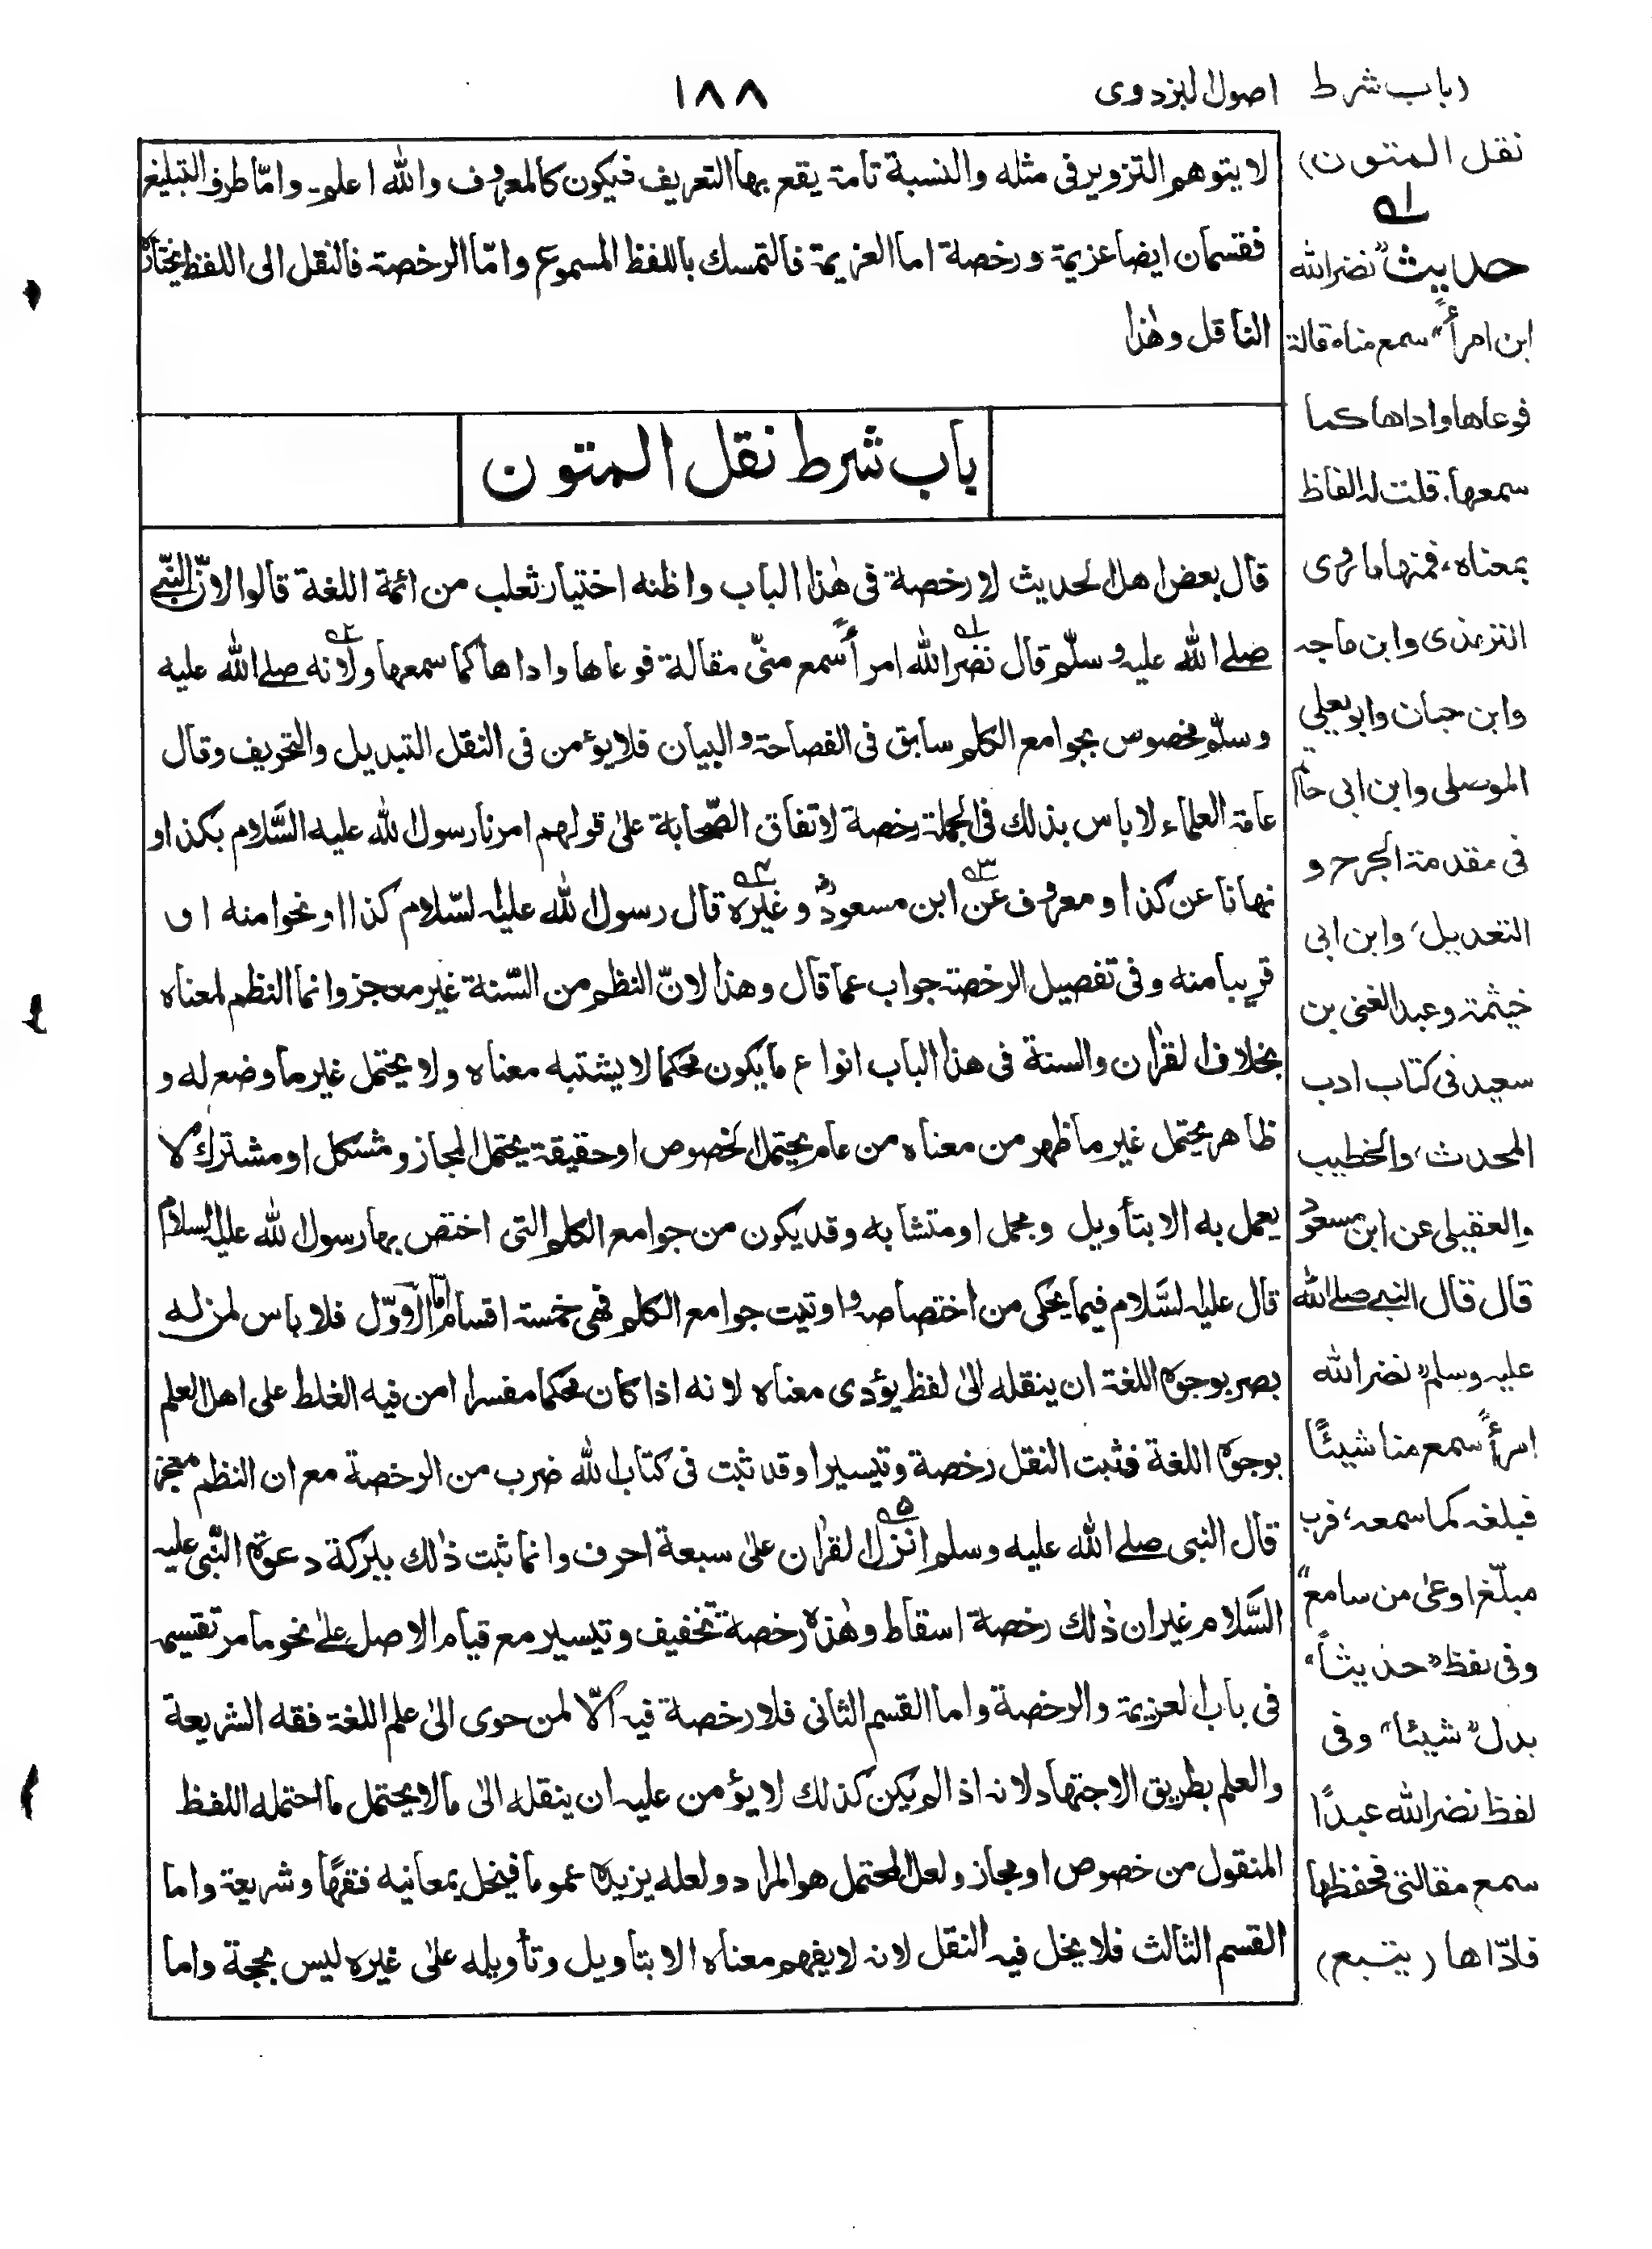 (باب شرط
اصول البزدوى
١٨٨
نقل المتون)
لا يتوهم التزوير فى مثله والنسبة تامة يقع بها التعريف فيكون كالمعروف والله اعلم۔ وامّا طرف التبليغ
فقسمان ايضا عزيمة ورخصة اما العزيمة فالتمسك باللفظ المسموع وامّا الرخصة فالنقل الى اللفظ يختاره
الناقل وهٰذا
باب شرط نقل المتون
قال بعض اهل الحديث لا رخصة فى هٰذا الباب واظنه اختيار ثعلب من ائمة اللغة قالوا لانّ النّبى
صلے الله عليه وسلّم قال نضر الله امرأً سمع منّى مقالة فوعاها واداها كما سمعها ولانه صلے الله عليه
وسلّم مخصوص بجوامع الكلم سابق فى الفصاحة والبيان فلا يؤمن فى النقل التبديل والتحريف وقال
عامة العلماء لا باس بذلك فى الجملة رخصة لاتفاق الصّحابة علىٰ قولهم امرنا رسول الله عليه السَّلام بكذا و
نهانا عن كذا ومعروف عن ابن مسعودؓ وغيره قال رسول الله عليه السّلام كذا او نحوا منه او
قريبا منه وفى تفصيل الرخصة جواب عما قال وهذا لانّ النظم من السّنة غير معجز وانما النظم لمعناه
بخلاف القراٰن والسنة فى هذا الباب انواع ما يكون محكما لا يشتبه معناه ولا يحتمل غير ما وضع له و
ظاهر يحتمل غير ما ظهر من معناه من عام يحتمل الخصوص او حقيقة يحتمل المجاز ومشكل او مشترك لا
يعمل به الا بتأويل ومجمل او متشابه وقد يكون من جوامع الكلم التى اختص بها رسول الله عليه السلام
قال عليه السَّلام فيما يحكى من اختصاصه واوتيت جوامع الكلم فهى خمسة اقسام امّا الاوّل فلا باس لمن له
بصر بوجوه اللغة ان ينقله الىٰ لفظ يؤدى معناه لانه اذا كان محكما مفسرا امن فيه الغلط على اهل العلم
بوجوه اللغة فثبت النقل رخصة وتيسيرا وقد ثبت فى كتاب الله ضرب من الرخصة مع ان النظم معجز
قال النبى صلے الله عليه وسلم انزل القراٰن علىٰ سبعة احرف وانما ثبت ذٰلك ببركة دعوة النّبى عليه
السَّلام غير ان ذٰلك رخصة اسقاط وهٰذه رخصة تخفيف وتيسير مع قيام الاصل علىٰ نحو ما مر تقسيمه
فى باب العزيمة والرخصة واما القسم الثانى فلا رخصة فيه الّا لمن حوى الىٰ علم اللغة فقه الشريعة
والعلم بطريق الاجتهاد لانه اذا لم يكن كذلك لا يؤمن عليه ان ينقله الىٰ ما لا يحتمل ما احتمله اللفظ
المنقول من خصوص او مجاز ولعل المحتمل هو المراد ولعله يزيده عموما فيخل بمعانيه فقهًا وشريعة واما
القسم الثالث فلا يخل فيه النقل لانه لا يفهم معناه الا بتاويل وتأويله علىٰ غيره ليس بحجة واما
حديث "نضر الله
ابن امرأً" سمع مناه قالة
فوعاها واداها كما
سمعها. قلت له الفاظ
بمعناه، فمنها ما روى
الترمذى وابن ماجه
وابن حبان وابو يعلي
الموصلى وابن ابى حاتم
فى مقدمة الجرح و
التعديل، وابن ابى
خيثمة وعبد الغنى بن
سعيد فى كتاب ادب
المحدث، والخطيب
والعقيلى عن ابن مسعودؓ
قال قال النبى صلے الله
عليه وسلم" نضر الله
امرأً سمع منا شيئًا
فبلغه كما سمعه، فرب
مبلّغ اوعىٰ من سامع"
وفى لفظ "حديثاً"
بدل "شيئا" وفى
لفظ نضر الله عبدًا
سمع مقالتى فحفظها
فادّاها (يتبع)